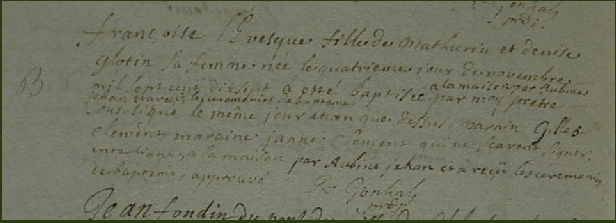 Gonhal
prêtre
françoise l'Evesque fille de Mathurin et denise
glotin sa femme née le quatrieme jour de novembre
B
mil sept cent dixsept a esté baptisée a la maison par Aubine
jehan et a reçu les ceremonies de bapteme par moy prestre
soussigné le même jour et an que dessus, parain Gilles
Clement maraine janne Clement qui ne scavent signer
interligne a la maison par Aubine jehan et a reçu les ceremonies
de bapteme, approuvé
Gonhal
prêtre
Jean fondin du pont